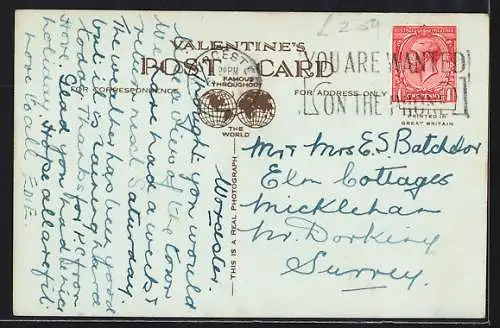 £2.59
VALENTINE'S
POST CARD
FOR CORRESPONDENCE
FAMOUS
THROUGHOUT
THE
WORLD
FOR ADDRESS ONLY
PRINTED IN
GREAT BRITAIN
THIS IS A REAL PHOTOGRAPH
YOU ARE WANTED
ON THE PHONE
Worcester.
thought you would
like a view of the town
We are on a week's
return on Saturday.
The weather has been good
but it is raining hard
today. Thanks for P.C. from
Hove. Glad you had a nice
holiday. Hope all are fit.
Love to all
Mr & Mrs E. S. Batchelor
Elm Cottages
Mickleham
Nr. Dorking
Surrey.